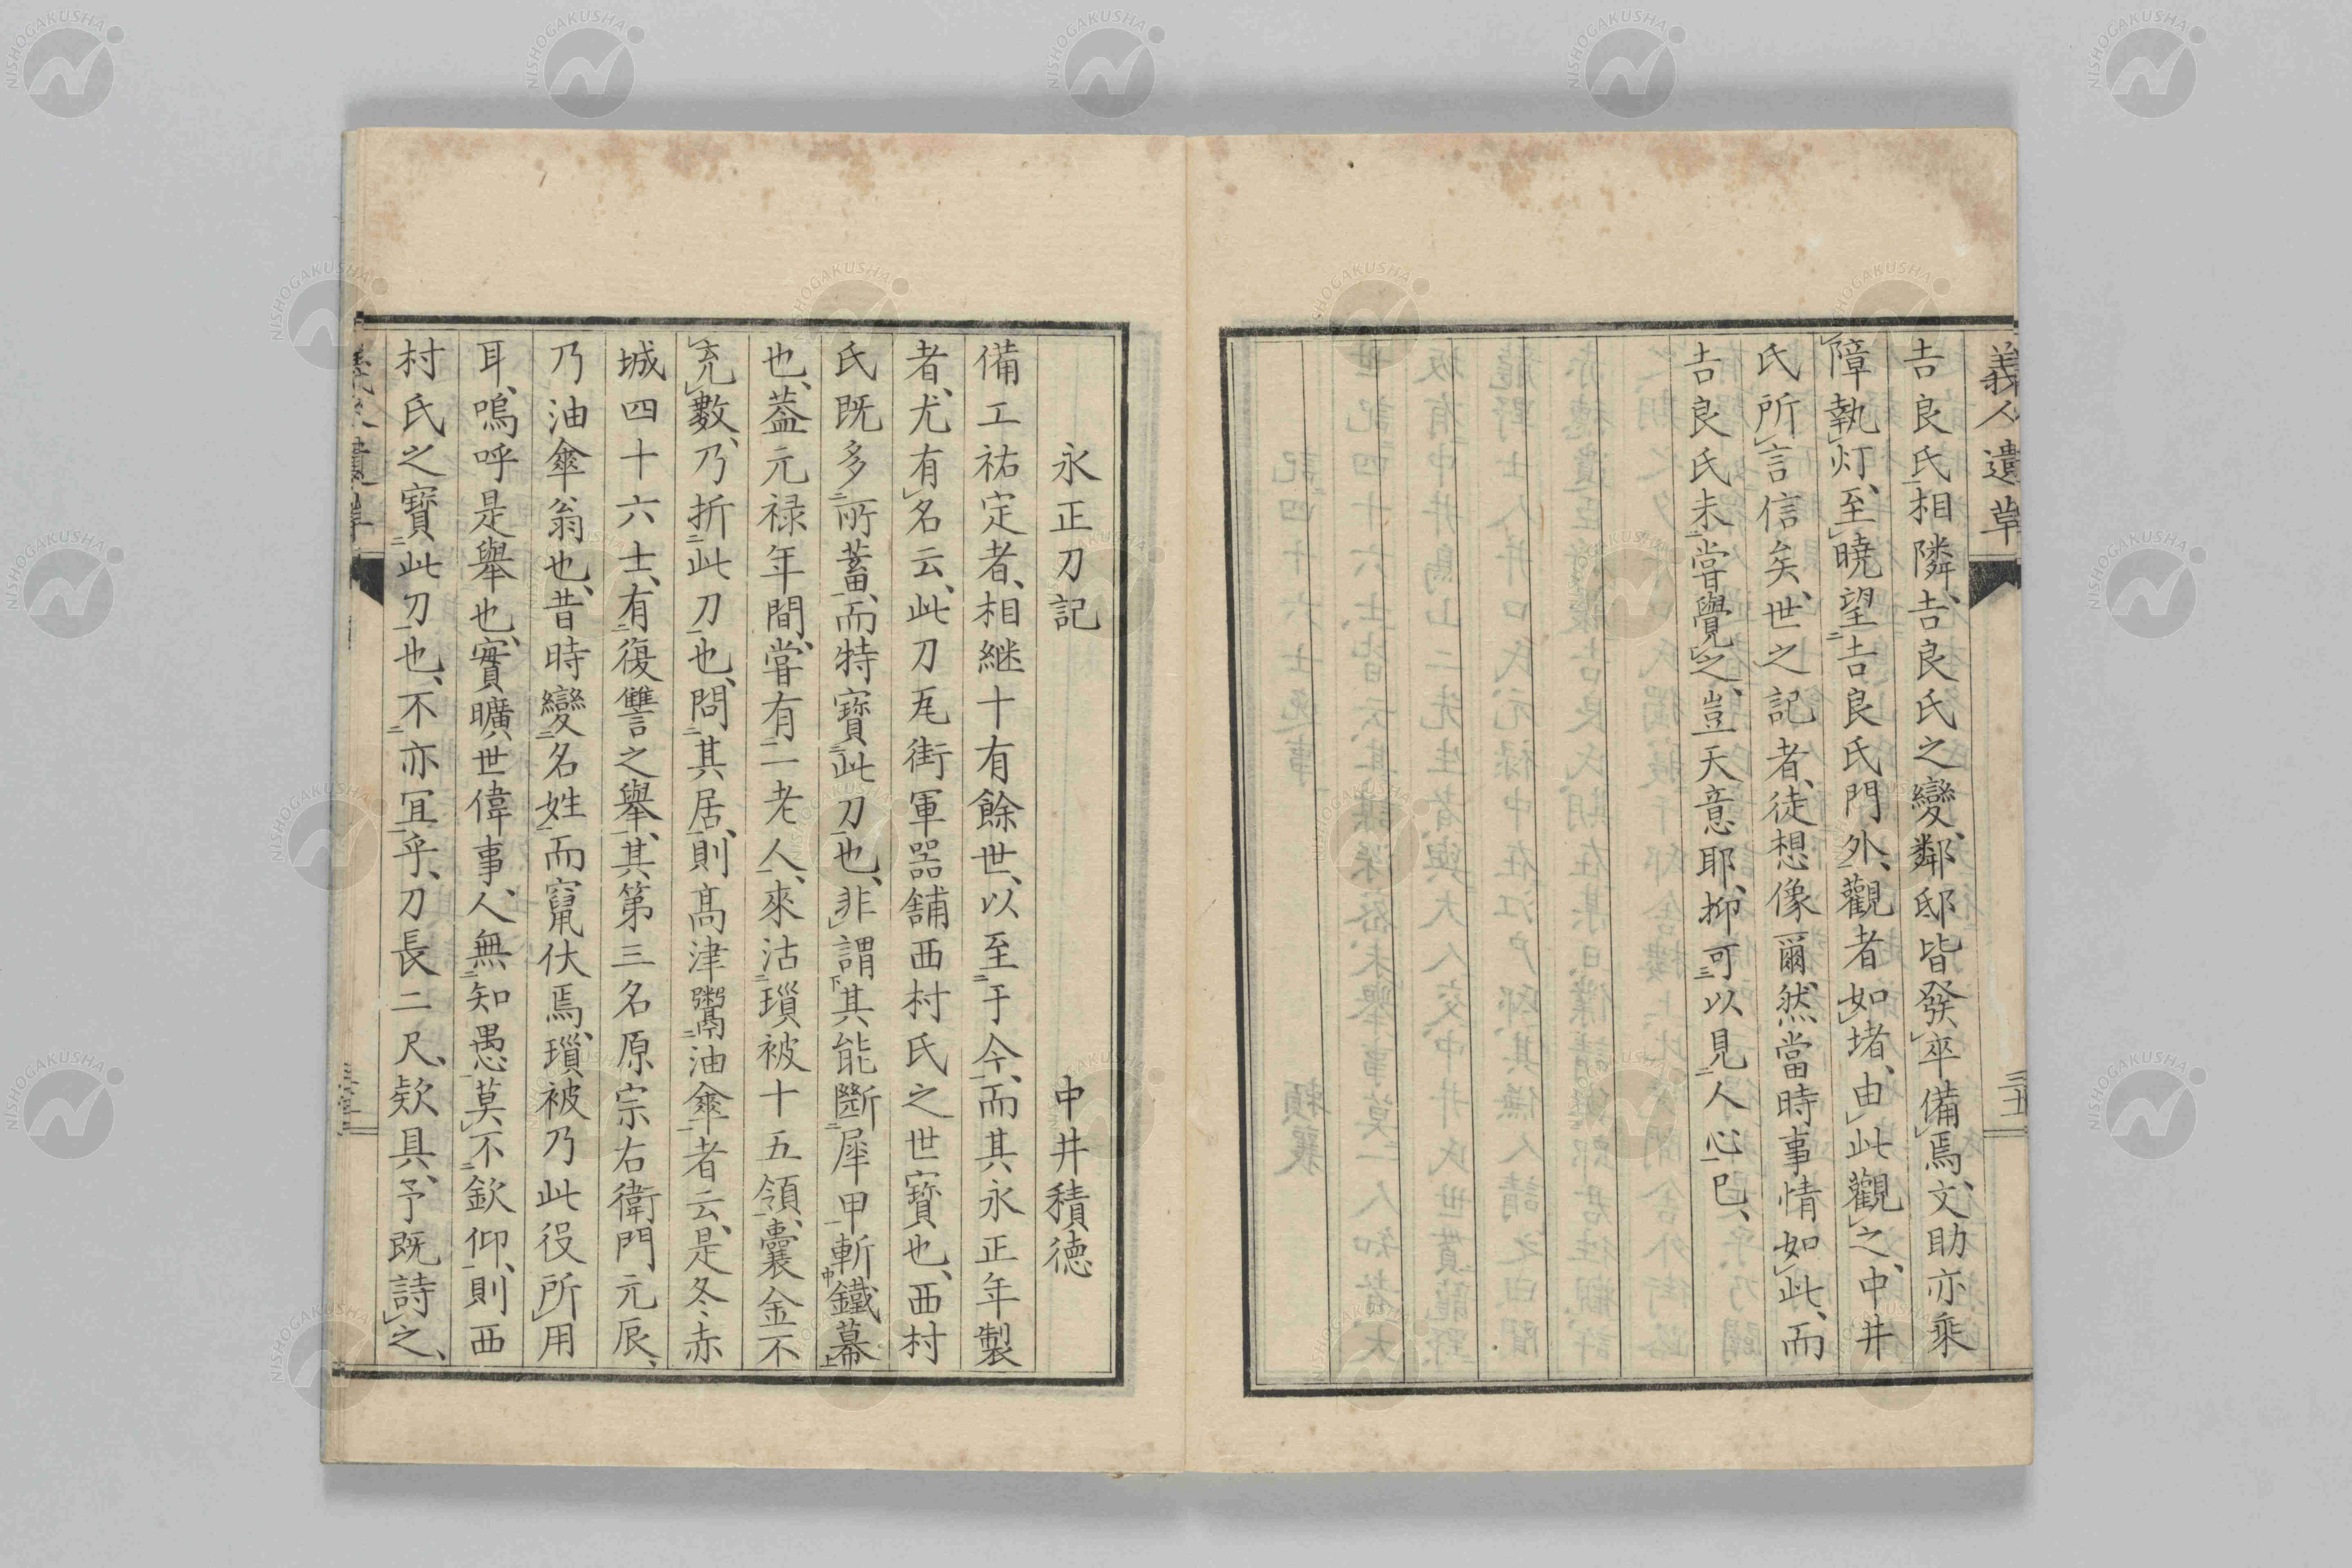 義人遺草
吉良氏相隣、吉良氏之變、鄰邸皆發卒備焉、文助亦乘
障執灯、至曉望吉良氏門外、觀者如堵、由此觀之、中井
氏所言信矣、世之記者、徒想像爾、然當時事情如此、而
吉良氏未嘗覺之、豈天意耶、抑可以見人心已、
永正刀記 中井積德
備工祐定者、相継十有餘世、以至于今、而其永正年製
者、尤有名云、此刀瓦街軍器舖西村氏之世寶也、西村
氏既多所蓄、而特寶此刀也、非謂其能斷犀甲斬鐵幕
也、蓋元禄年間、嘗有二老人、來沽瑣被十五領、囊金不
充數、乃折此刀也、問其居、則髙津鬻油傘者云、是冬赤
城四十六士、有復讐之舉、其第三名原宗右衛門元辰、
乃油傘翁也、昔時變名姓、而竄伏焉、瑣被乃此役所用
耳、嗚呼是舉也、實曠世偉事、人無知愚、莫不欽仰、則西
村氏之寶此刀也、不亦冝乎、刀長二尺、欵具、予既詩之、
NISHOGAKUSHA